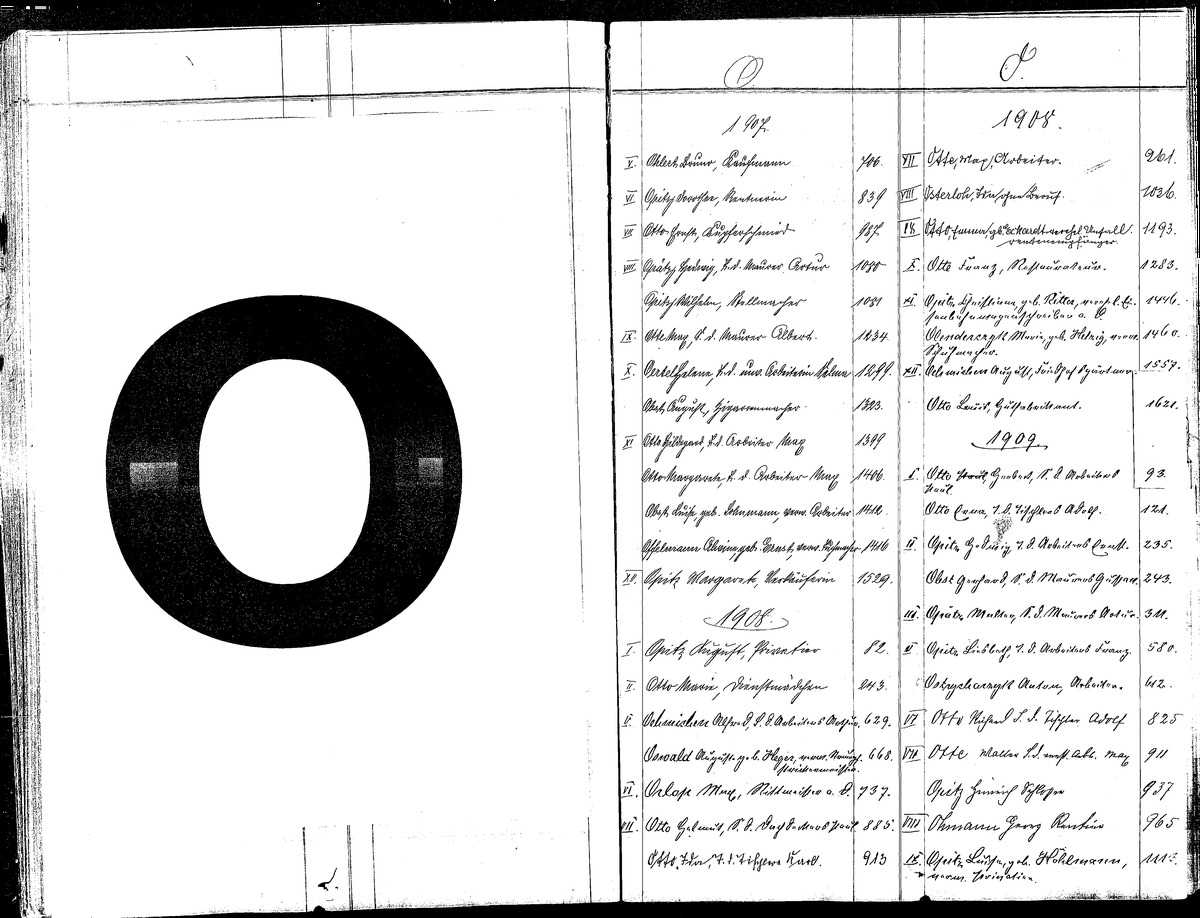 O
O.
1907.
V. Ohlert, Bruno, Kaufmann 706.
VI. Opitz, Dorothea, Rentnerin 839
VII. Otto Ernst, Kupferschmied 987.
VIII. Opätz, Hedwig, T. d. Maurer Artur 1080
Opitz, Wilhelm, Stellmacher 1081
IX. Otto Max S. d. Maurer Albert. 1234.
X. Oertel Helene, T. d. unv. Arbeiterin Selma 1299.
Obst, August, Zigarrenmacher. 1323.
XI. Otto Hildegard, T. d. Arbeiter Max 1399
Otto Margarete, T. d. Arbeiter Max 1406.
Obst, Luise, geb. Lohnmann, verw. Arbeiter 1412.
Offelmann Alwine, geb. Ernst, verw. 1416
XII. Opitz Margarete, Verkäuferin 1529.
1908.
I. Opitz August, Privatier 82.
II. Otto Marie, Dienstmädchen 243.
V. Oehmichen Alfred, S. d. Arbeiters Arthur. 629.
Oswald Auguste geb. Heger, verw. 668.
VI. Max, Rittmeister a. D. 737.
VII. Otto Helmut, S. d. Dachdeckers Paul 885.
Otto, Ida, T. d. Tischlers Karl. 913
O.
1908.
VII Otte, Max, Arbeiter. 961.
VIII Osterloh, Ida, ohne Beruf. 1036.
IX. Otto, Emma, geb. Eckardt verehel. Unfall- 1193.
rentenempfänger.
X. Otto Franz, Restaurateur. 1283.
XI. Opitz, Christiane, geb. Ritter, verehel. Ei- 1446.
senbahnwagenschreiber a. D.
Marie, geb. verw. 1460.
Schuhmacher.
XII. Oehmichen August, Friedhofsgärtner. 1557.
Otto Louis, Gutsabrikant. 1621.
1909
I. Otto Herbert, S. d. Arbeiters 93.
Paul.
Otto Erna, T. d. Tischlers Adolf. 121.
II. Opitz Hedwig, T. d. Arbeiters Ernst. 235.
Obst Gerhard, S. d. Maurers Gustav. 243.
III. Opätz Walter, S. d. Maurers Artur. 311.
V. Opitz Liesbeth, T. d. Arbeiters Franz. 580.
Anton, Arbeiter. 612.
VI Otto Richard S. d. Tischler Adolf 825
VII Otte Walter S. d. Arb. Max 911
Opitz Heinrich Schlosser 937
VIII Ohmann Georg Rentier 965
IX. Opitz Luise, geb. Höhlmann,
verw. Privatier.